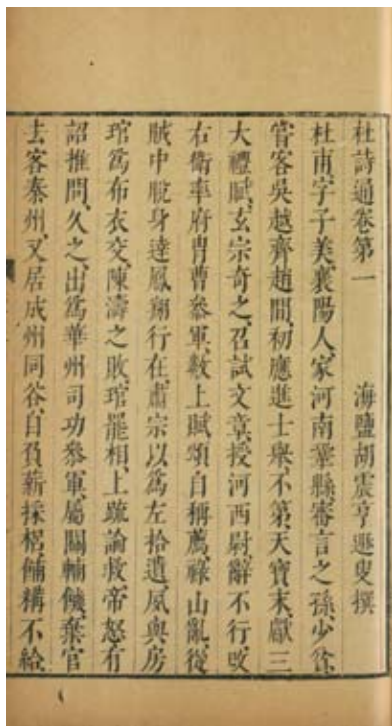 杜詩通卷第一 海鹽胡震亨遯叟撰
杜甫、字子美、襄陽人、家河南鞏縣、審言之孫、少貧、
嘗客吳越齊趙間、初應進士舉、不第、天寶末、獻三
大禮賦、玄宗奇之、召試文章、授河西尉、辭不行、改
右衛率府胄曹參軍、數上賦頌、自稱薦、祿山亂、從
賊中脫身達鳳翔行在、肅宗以爲左拾遺、夙與房
琯爲布衣交、陳濤之敗、琯罷相、上疏論救、帝怒、有
詔推問、久之、出爲華州司功參軍、屬關輔饑、棄官
去、客秦州、又居成州同谷、自負薪採梠、餔糒不給、